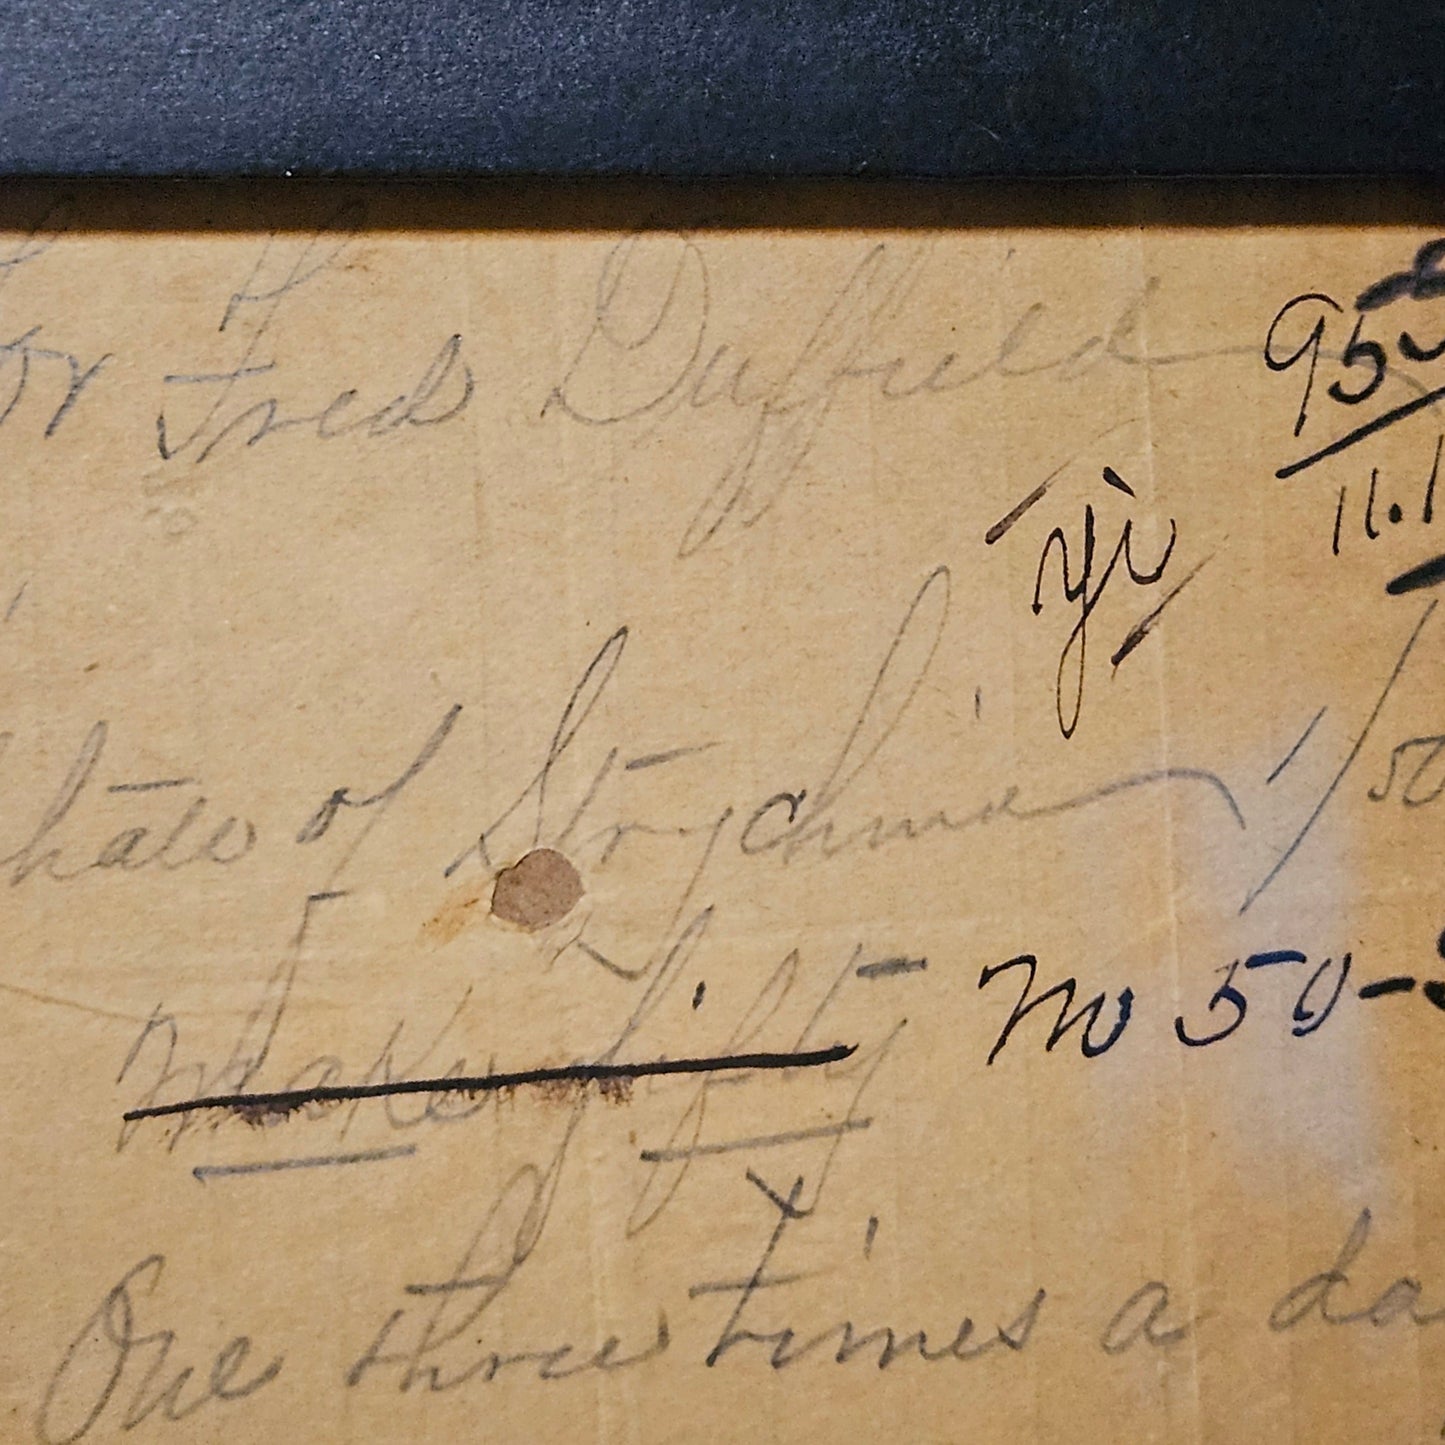 For Fred Duffield
95
11.1
yi
hate of Strychnia 1/50
Make fifty No 50
One three times a da